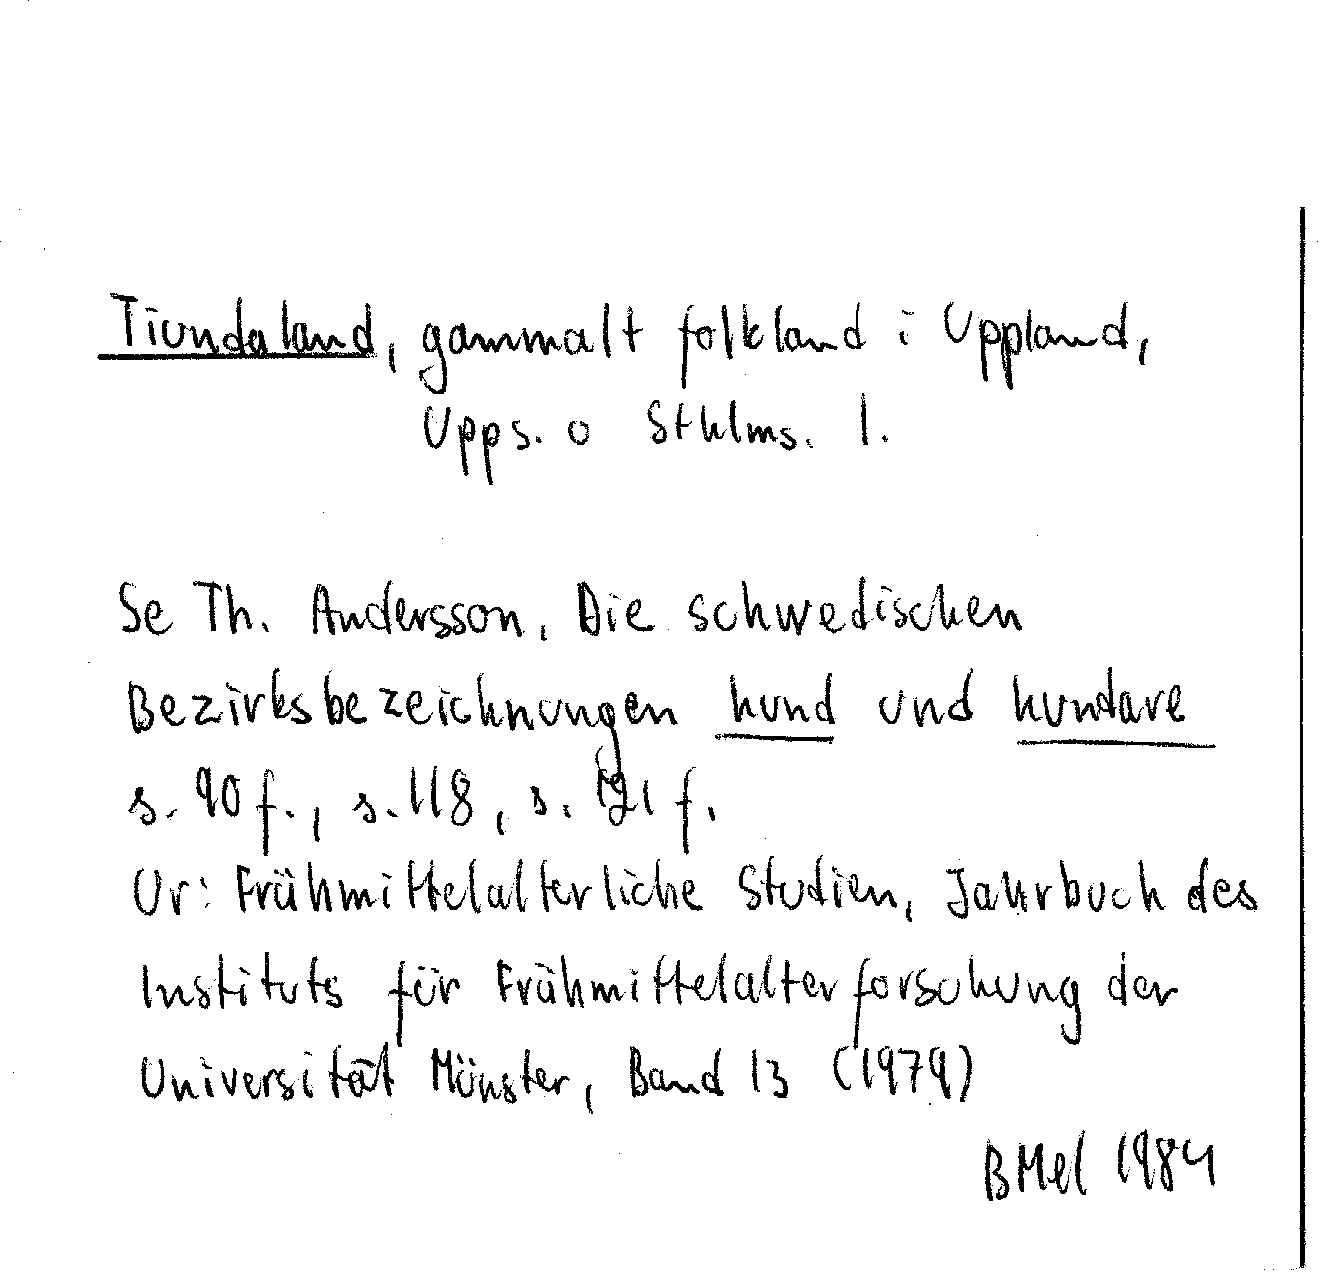 Tiundaland, gammalt folkland i Uppland,
Upps. o Sthlms. l.
Se Th. Andersson, Die schwedischen
Bezirksbezeichnungen hund und hundare
s. 90 f., s. 118, s. 121 f.
Ur: Frühmittelalterliche Studien, Jahrbuch des
Instituts für Frühmittelalterforschung der
Universität Münster, Band 13 (1979)
BMel 1984